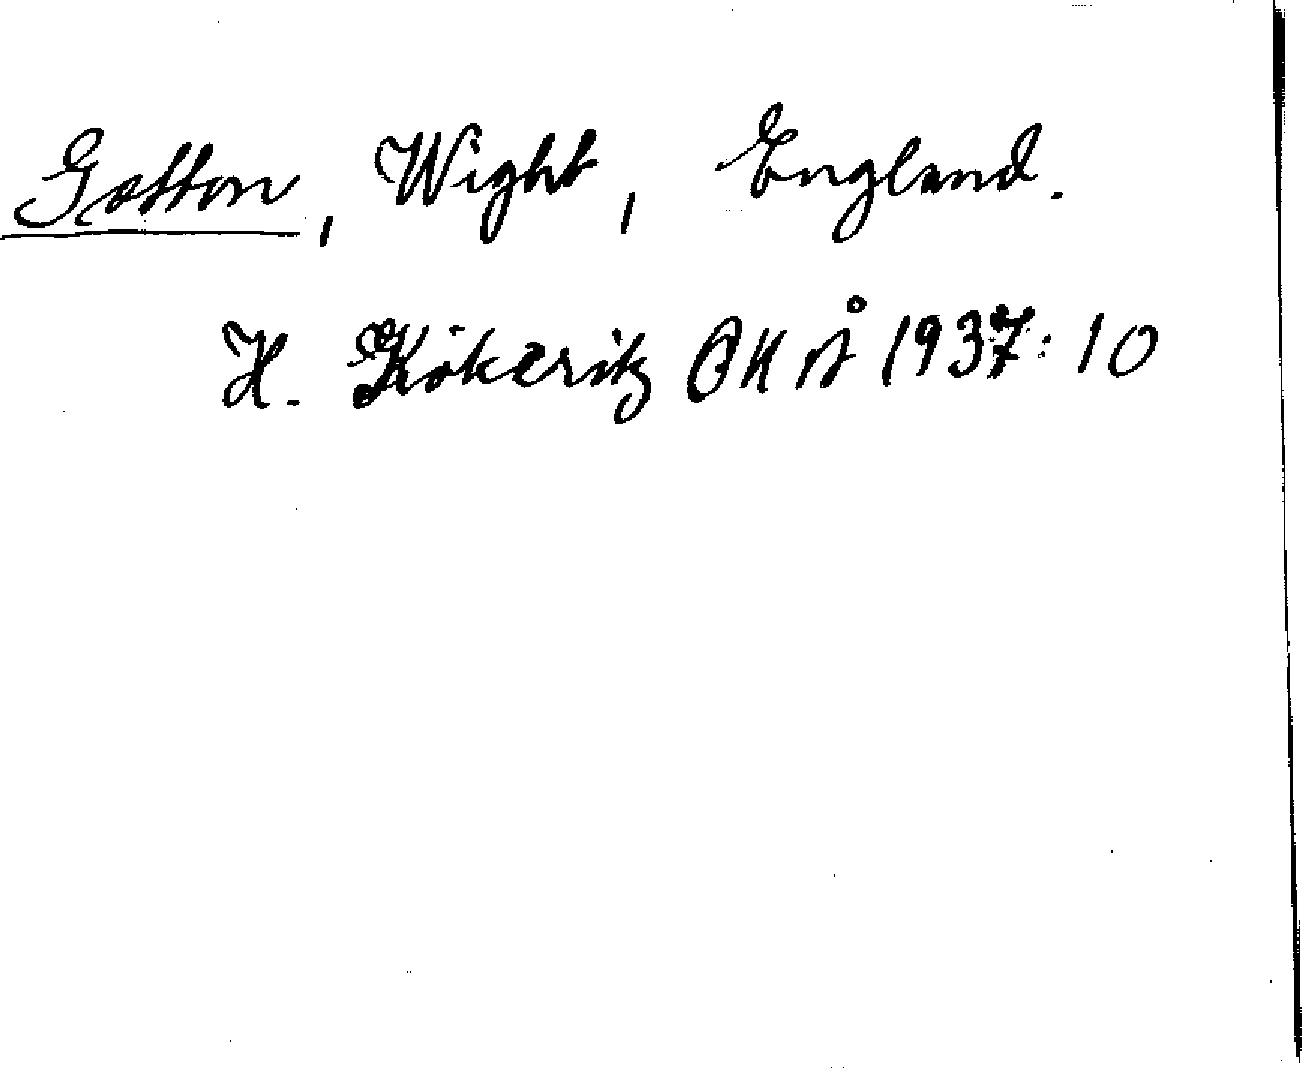 Gotton, Wight, England.
H. Kökeritz ONÅ 1937:10